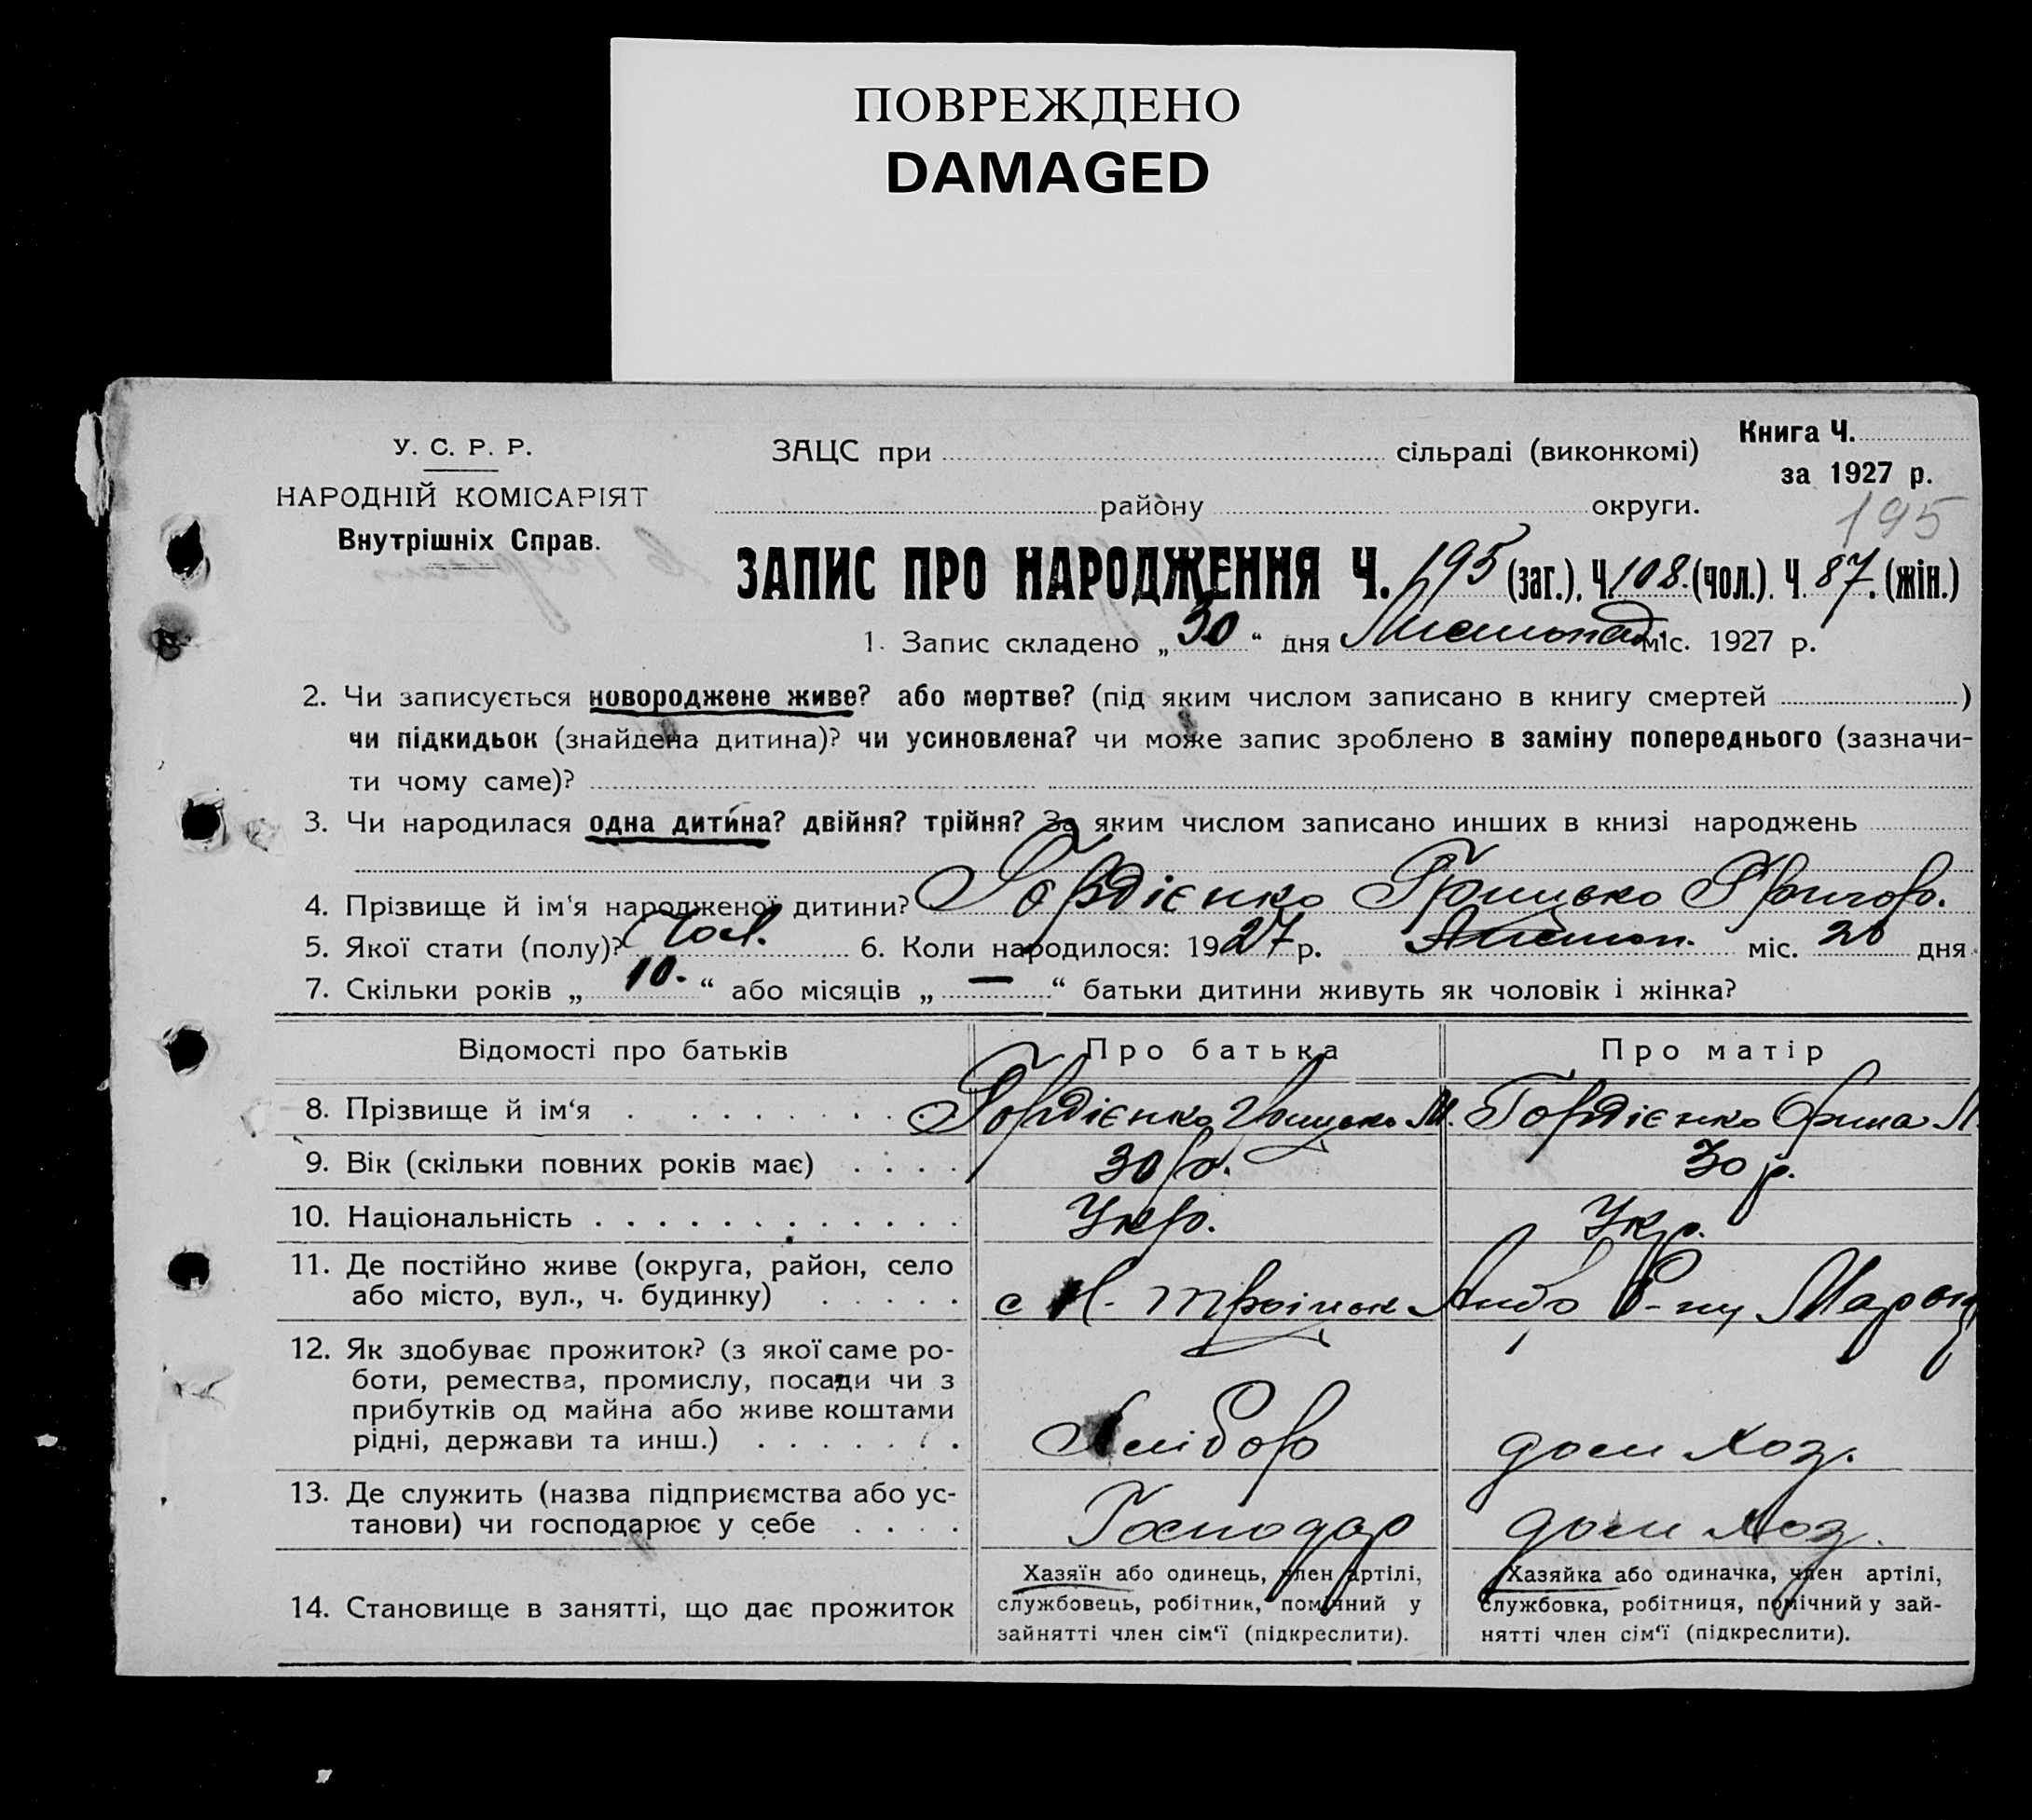 ПОВРЕЖДЕНО
DAMAGED
У. С. Р. Р.
НАРОДНІЙ КОМІСАРІЯТ
Внутрішніх Справ.
ЗАЦС при сільраді (виконкомі)
району округи.
Книга Ч.
за 1927 р.
195
ЗАПИС ПРО НАРОДЖЕННЯ Ч. 195 (заг.), Ч. 108. (чол.). Ч. 87. (жін.)
1. Запис складено „ 30 “ дня Листопад. міс. 1927 р.
2. Чи записується новороджене живе? або мертве? (під яким числом записано в книгу смертей )
чи підкидьок (знайдена дитина)? чи усиновлена? чи може запис зроблено в заміну попереднього (зазначи-
ти чому саме)?
3. Чи народилася одна дитина? двійня? трійня? За яким числом записано инших в книзі народжень
4. Прізвище й ім'я народженої дитини? Гордієнко Грицько Григор.
5. Якої стати (полу)? Чол. 6. Коли народилося: 1927 р. Листоп. міс. 26 дня
7. Скільки років „ 10. “ або місяців „ — “ батьки дитини живуть як чоловік і жінка?
Відомості про батьків Про батька Про матір
8. Прізвище й ім‘я . . . . . . . Гордієнко Грицько М. Гордієнко Орина М.
9. Вік (скільки повних років має) . . . . 30 р. 30 р.
10. Національність . . . . . . . . . . . . . Укр. Укр.
11. Де постійно живе (округа, район, село
або місто, вул., ч. будинку) . . . . . с Н. Троіцьк Р-ну
12. Як здобуває прожиток? (з якої саме ро-
боти, ремества, промислу, посади чи з
прибутків од майна або живе коштами
рідні, держави та инш.) . . . . . . . Хлібор дом хоз.
13. Де служить (назва підприємства або ус-
танови) чи господарює у себе . . . . Господар дом хоз.
14. Становище в занятті, що дає прожиток
Хазяїн або одинець, член артілі,
службовець, робітник, помічний у
зайнятті член сім‘ї (підкреслити).
Хазяйка або одиначка, член артілі,
службовка, робітниця, помічний у зай-
нятті член сім‘ї (підкреслити).